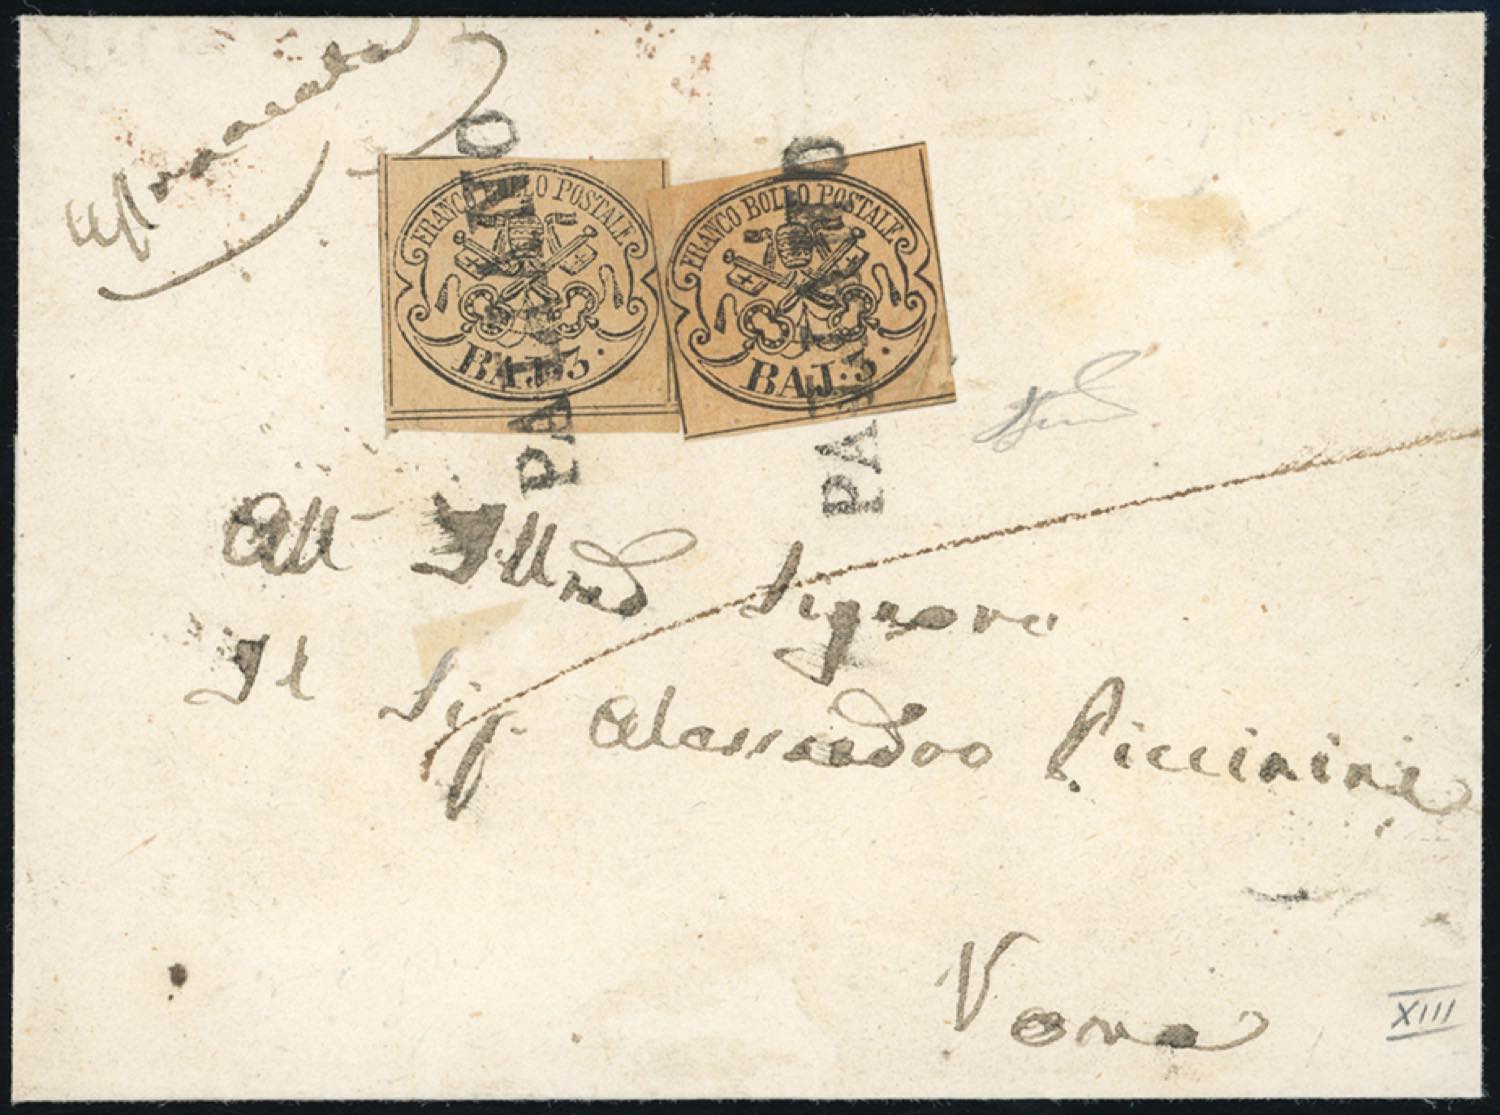 Affrancata
FRANCO BOLLO POSTALE
BAJ. 3.
FRANCO BOLLO POSTALE
BAJ. 3.
All Illmo Signore
Il Sig. Alessandro Piccinini
XIII